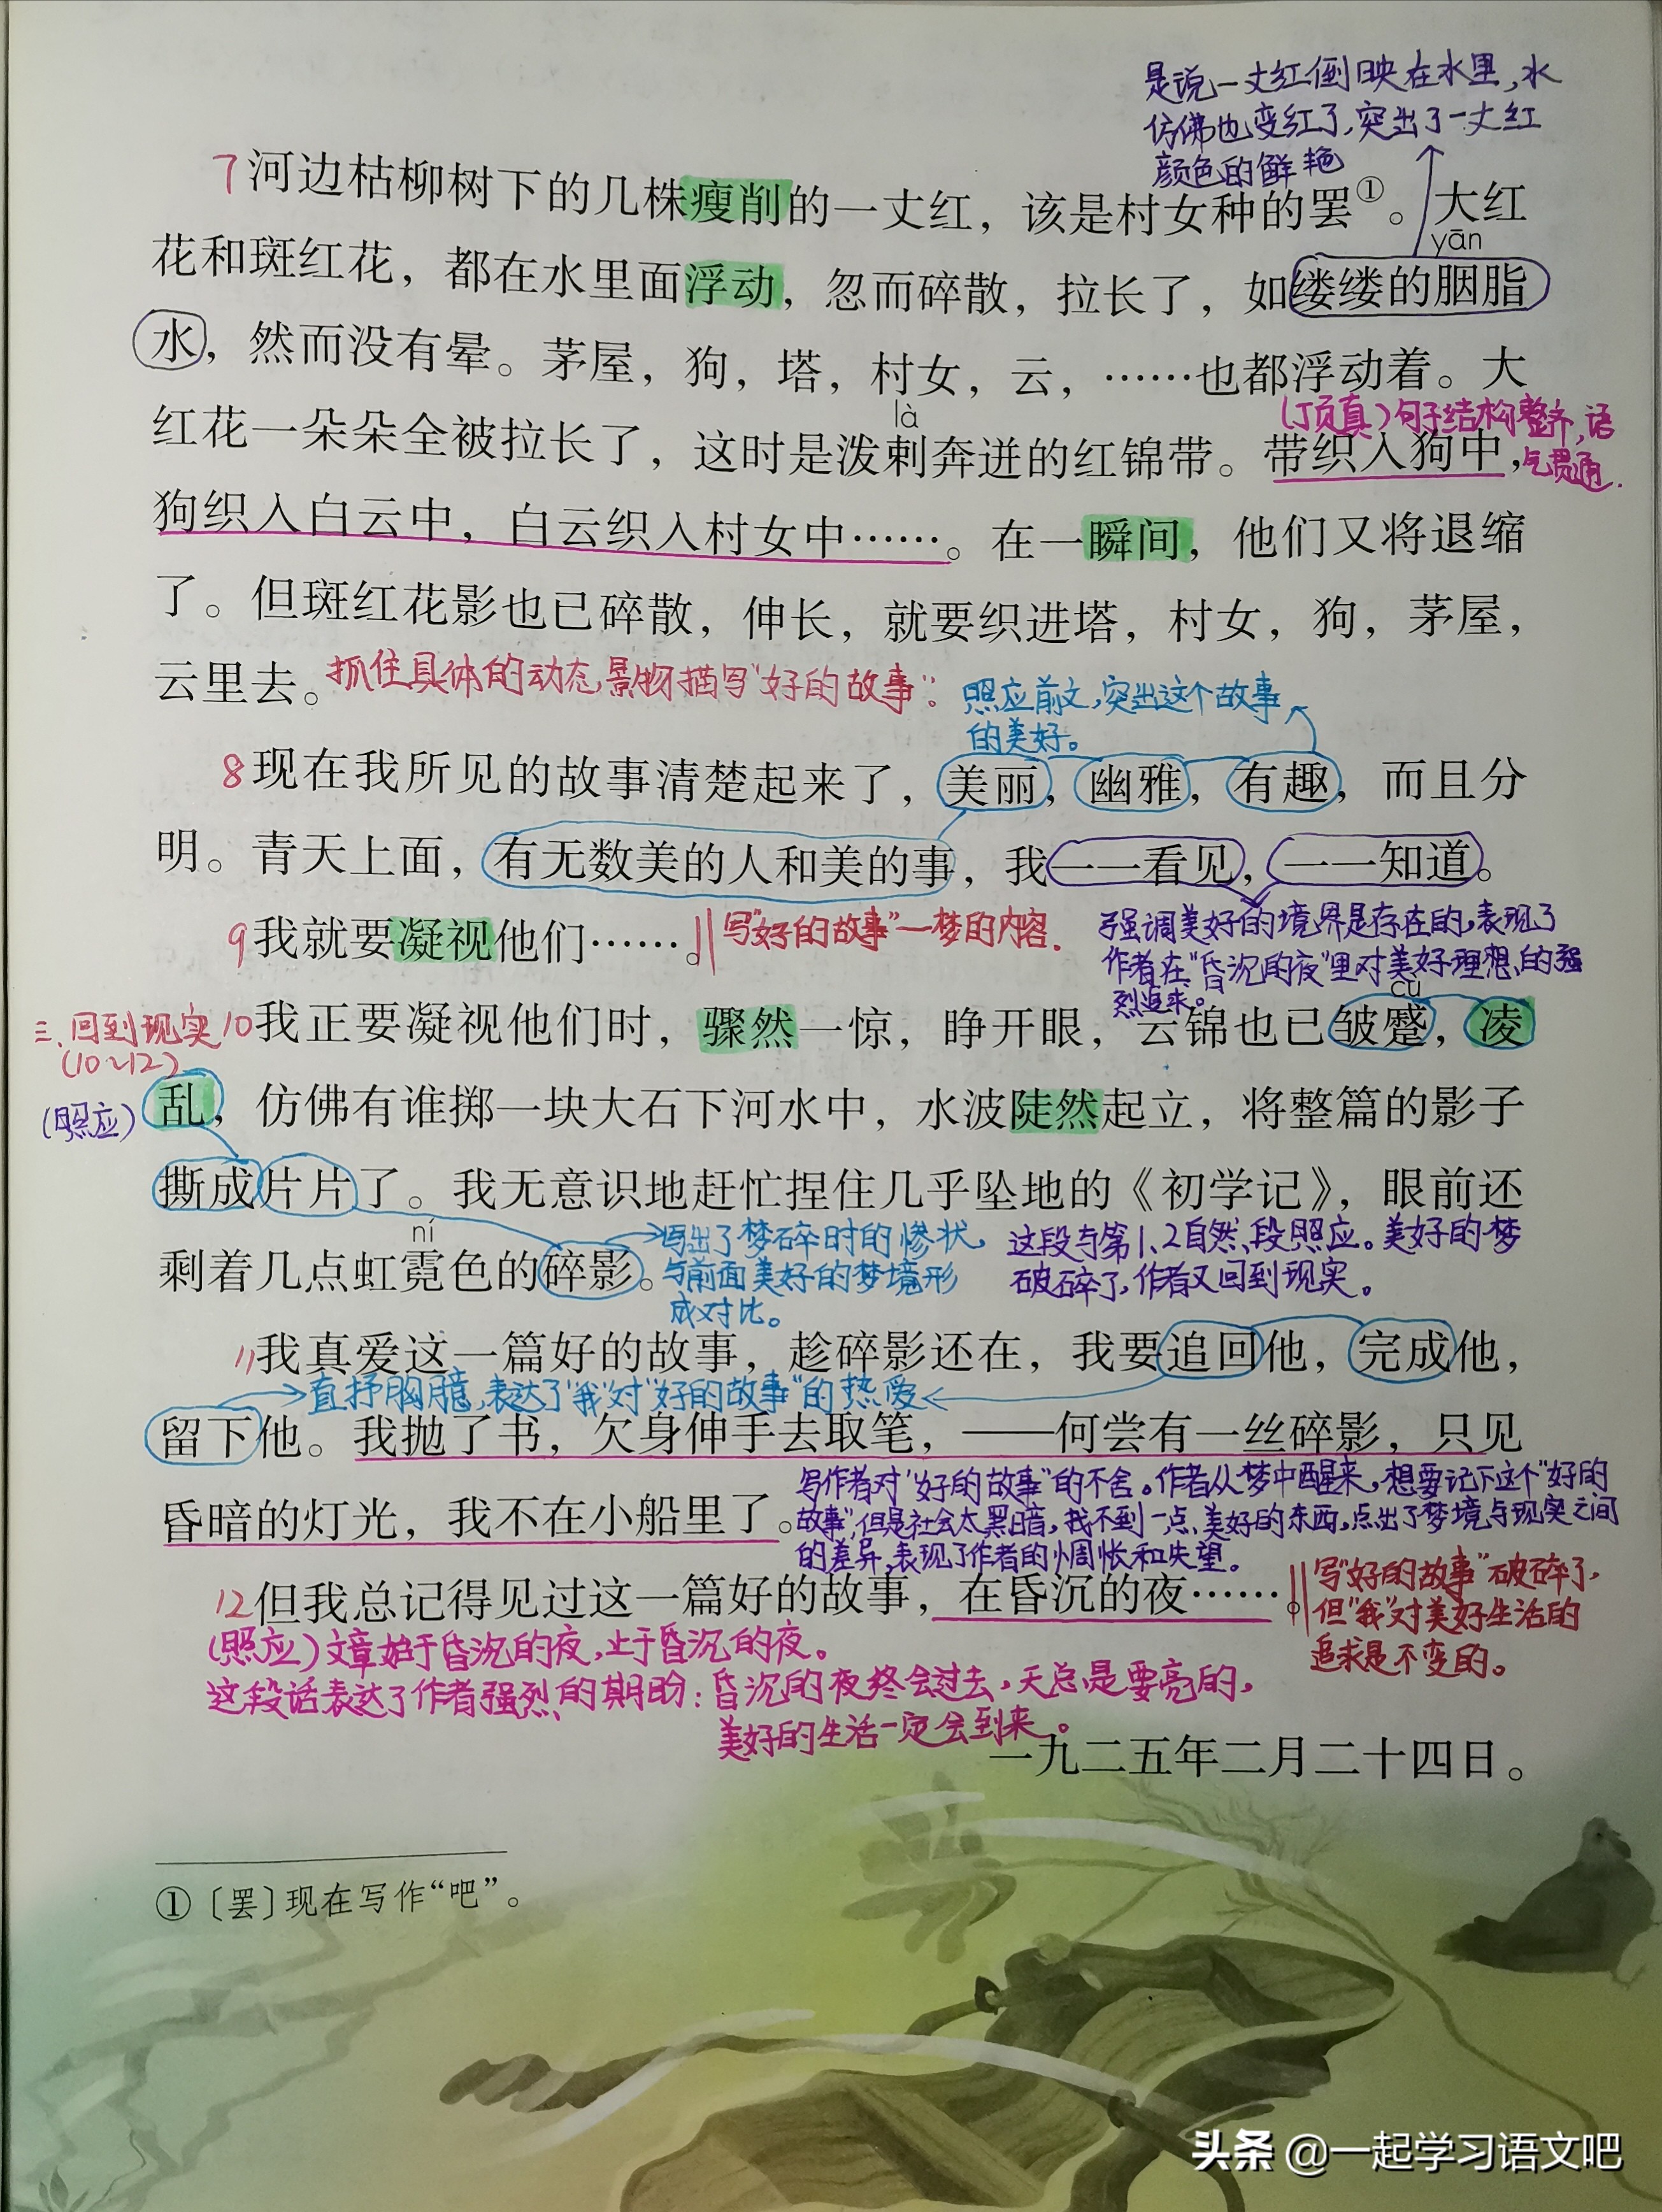 是说一丈红倒映在水里,水
仿佛也变红了,突出了一丈红
颜色的鲜艳
7河边枯柳树下的几株瘦削的一丈红，该是村女种的罢①。大红
yān
花和斑红花，都在水里面浮动，忽而碎散，拉长了，如缕缕的胭脂
水，然而没有晕。茅屋，狗，塔，村女，云，……也都浮动着。大
là
(顶真)句子结构整齐,语
气贯通.
红花一朵朵全被拉长了，这时是泼剌奔迸的红锦带。带织入狗中，
狗织入白云中，白云织入村女中……。在一瞬间，他们又将退缩
了。但斑红花影也已碎散，伸长，就要织进塔，村女，狗，茅屋，
云里去。抓住具体的动态景物描写“好的故事”。
照应前文,突出这个故事
的美好。
8现在我所见的故事清楚起来了，美丽，幽雅，有趣，而且分
明。青天上面，有无数美的人和美的事，我一一看见，一一知道。
9我就要凝视他们……。写“好的故事”—梦的内容.
强调美好的境界是存在的,表现了
作者在“昏沉的夜”里对美好理想的强
烈追求。
cù
三、回到现实
(10~12)
10我正要凝视他们时，骤然一惊，睁开眼，云锦也已皱蹙，凌
(照应)
乱，仿佛有谁掷一块大石下河水中，水波陡然起立，将整篇的影子
撕成片片了。我无意识地赶忙捏住几乎坠地的《初学记》，眼前还
ní
剩着几点虹霓色的碎影。
写出了梦碎时的惨状,
与前面美好的梦境形
成对比。
这段与第1、2自然段照应。美好的梦
破碎了,作者又回到现实。
11我真爱这一篇好的故事，趁碎影还在，我要追回他，完成他，
直抒胸臆,表达了“我”对“好的故事”的热爱
留下他。我抛了书，欠身伸手去取笔，——何尝有一丝碎影，只见
昏暗的灯光，我不在小船里了。
写作者对“好的故事”的不舍。作者从梦中醒来,想要记下这个“好的
故事”,但是社会太黑暗,找不到一点美好的东西,点出了梦境与现实之间
的差异,表现了作者的惆怅和失望。
12但我总记得见过这一篇好的故事，在昏沉的夜……。
写“好的故事”破碎了,
但“我”对美好生活的
追求是不变的。
(照应)文章始于昏沉的夜,止于昏沉的夜。
这段话表达了作者强烈的期盼：昏沉的夜终会过去,天总是要亮的,
美好的生活一定会到来。
一九二五年二月二十四日。
①〔罢〕现在写作“吧”。
头条 @一起学习语文吧